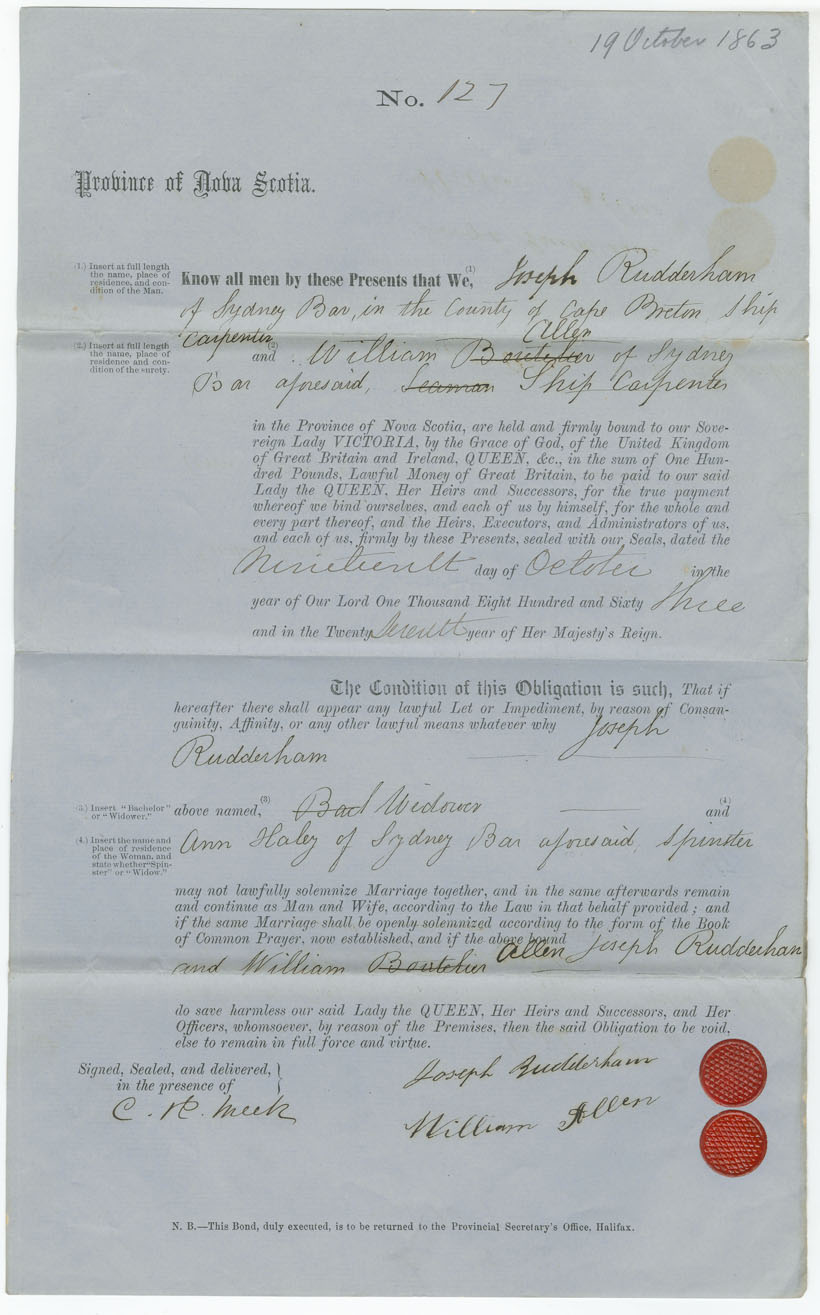 19 October 1863
No. 127
Province of Nova Scotia.
(1.) Insert at full length
the name, place of
residence, and con-
dition of the Man.
Know all men by these Presents that We,(1) Joseph Rudderham
of Sydney Bar, in the County of Cape Breton Ship
Carpenter
(2.) Insert at full length
the name, place of
residence and con-
dition of the surety.
Allen
(2) and William Boutelier of Sydney
Bar aforesaid, Seaman Ship Carpenter
in the Province of Nova Scotia, are held and firmly bound to our Sove-
reign Lady VICTORIA, by the Grace of God, of the United Kingdom
of Great Britain and Ireland, QUEEN, &c., in the sum of One Hun-
dred Pounds, Lawful Money of Great Britain, to be paid to our said
Lady the QUEEN, Her Heirs and Successors, for the true payment
whereof we bind ourselves, and each of us by himself, for the whole and
every part thereof, and the Heirs, Executors, and Administrators of us,
and each of us, firmly by these Presents, sealed with our Seals, dated the
Nineteenth day of October in the
year of Our Lord One Thousand Eight Hundred and Sixty Three
and in the Twenty Seventh year of Her Majesty's Reign.
The Condition of this Obligation is such, That if
hereafter there shall appear any lawful Let or Impediment, by reason of Consan-
guinity, Affinity, or any other lawful means whatever why Joseph
Rudderham
(3.) Insert "Bachelor"
or "Widower."
above named,(3) Bach Widower (4) and
(4.) Insert the name and
place of residence
of the Woman, and
state whether "Spin-
ster" or "Widow."
Ann Haley of Sydney Bar aforesaid, Spinster
may not lawfully solemnize Marriage together, and in the same afterwards remain
and continue as Man and Wife, according to the Law in that behalf provided; and
if the same Marriage shall be openly solemnized according to the form of the Book
of Common Prayer, now established, and if the above bound Joseph Rudderham
Allen
and William Boutelier
do save harmless our said Lady the QUEEN, Her Heirs and Successors, and Her
Officers, whomsoever, by reason of the Premises, then the said Obligation to be void,
else to remain in full force and virtue.
Signed, Sealed, and delivered,
in the presence of
Joseph Rudderham
C. R. Meek
William Allen
N. B.—This Bond, duly executed, is to be returned to the Provincial Secretary's Office, Halifax.